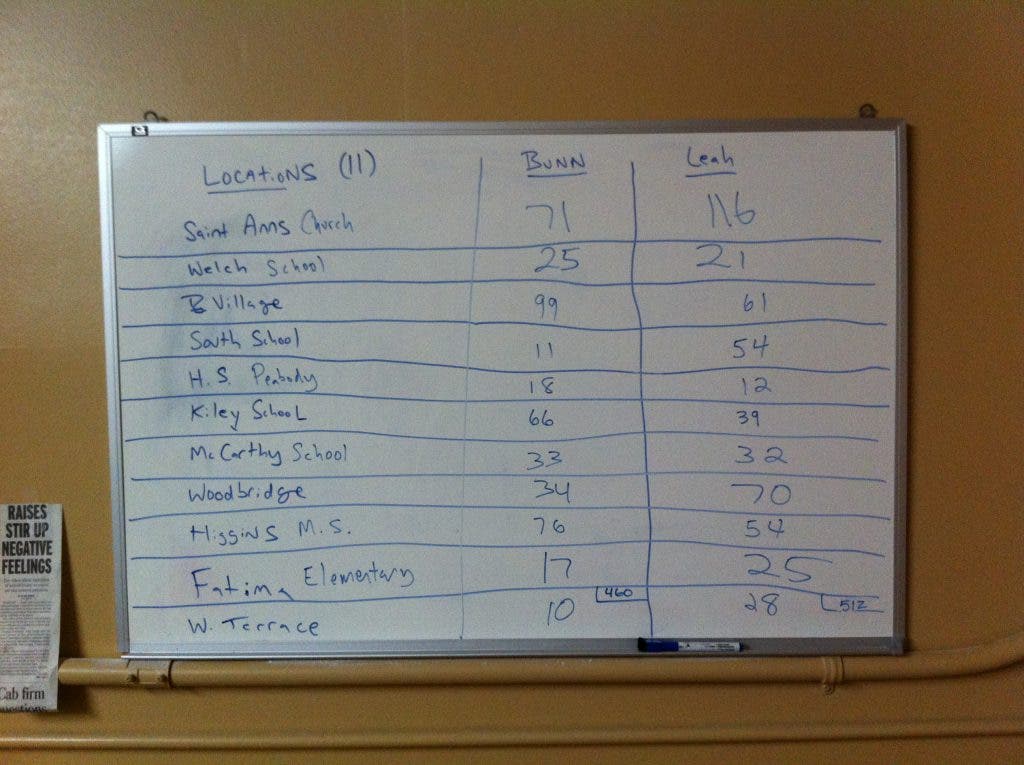 LOCATIONS (11) BUNN Leah
Saint Anns Church 71 116
Welch School 25 21
B Village 99 61
South School 11 54
H.S. Peabody 18 12
Kiley School 66 39
McCarthy School 33 32
Woodbridge 34 70
Higgins M.S. 76 54
Fatima Elementary 17 25
W. Terrace 10 460 28 512
RAISES
STIR UP
NEGATIVE
FEELINGS
Cab firm
questions